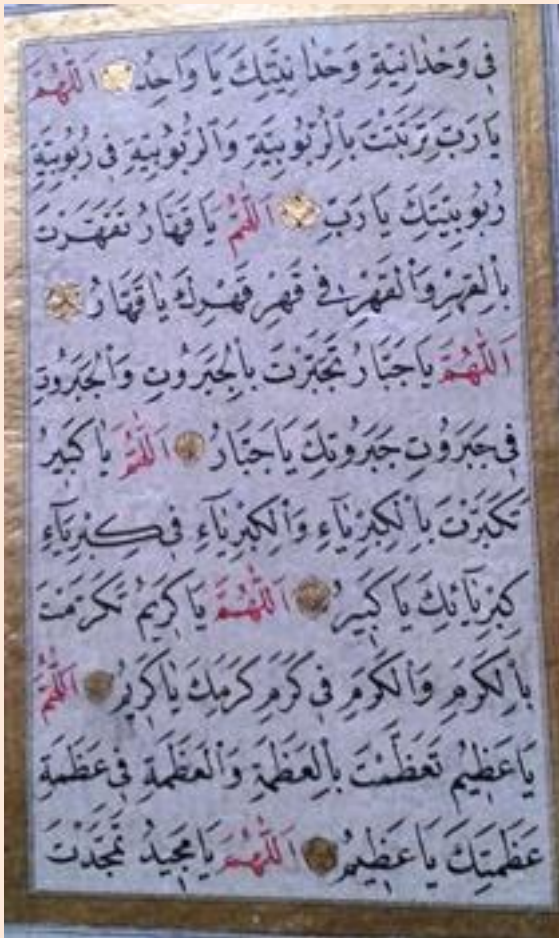 فِي وَحْدَانِيَّةِ وَحْدَانِيَّتِكَ يَا وَاحِدُ اَللّٰهُمَّ
يَا رَبِّ تَرَبَّبْتَ بِالرُّبُوبِيَّةِ وَالرُّبُوبِيَّةِ فِي رُبُوبِيَّةِ
رُبُوبِيَّتِكَ يَا رَبِّ اَللّٰهُمَّ يَا قَهَّارُ تَقَهَّرْتَ
بِالْقَهْرِ وَالْقَهْرِ فِي قَهْرِ قَهْرِكَ يَا قَهَّارُ
اَللّٰهُمَّ يَا جَبَّارُ تَجَبَّرْتَ بِالْجَبَرُوتِ وَالْجَبَرُوتِ
فِي جَبَرُوتِ جَبَرُوتِكَ يَا جَبَّارُ اَللّٰهُمَّ يَا كَبِيرُ
تَكَبَّرْتَ بِالْكِبْرِيَآءِ وَالْكِبْرِيَآءِ فِي كِبْرِيَآءِ
كِبْرِيَائِكَ يَا كَبِيرُ اَللّٰهُمَّ يَا كَرِيمُ تَكَرَّمْتَ
بِالْكَرَمِ وَالْكَرَمِ فِي كَرَمِ كَرَمِكَ يَا كَرِيمُ اَللّٰهُمَّ
يَا عَظِيمُ تَعَظَّمْتَ بِالْعَظَمَةِ وَالْعَظَمَةِ فِي عَظَمَةِ
عَظَمَتِكَ يَا عَظِيمُ اَللّٰهُمَّ يَا مَجِيدُ تَمَجَّدْتَ